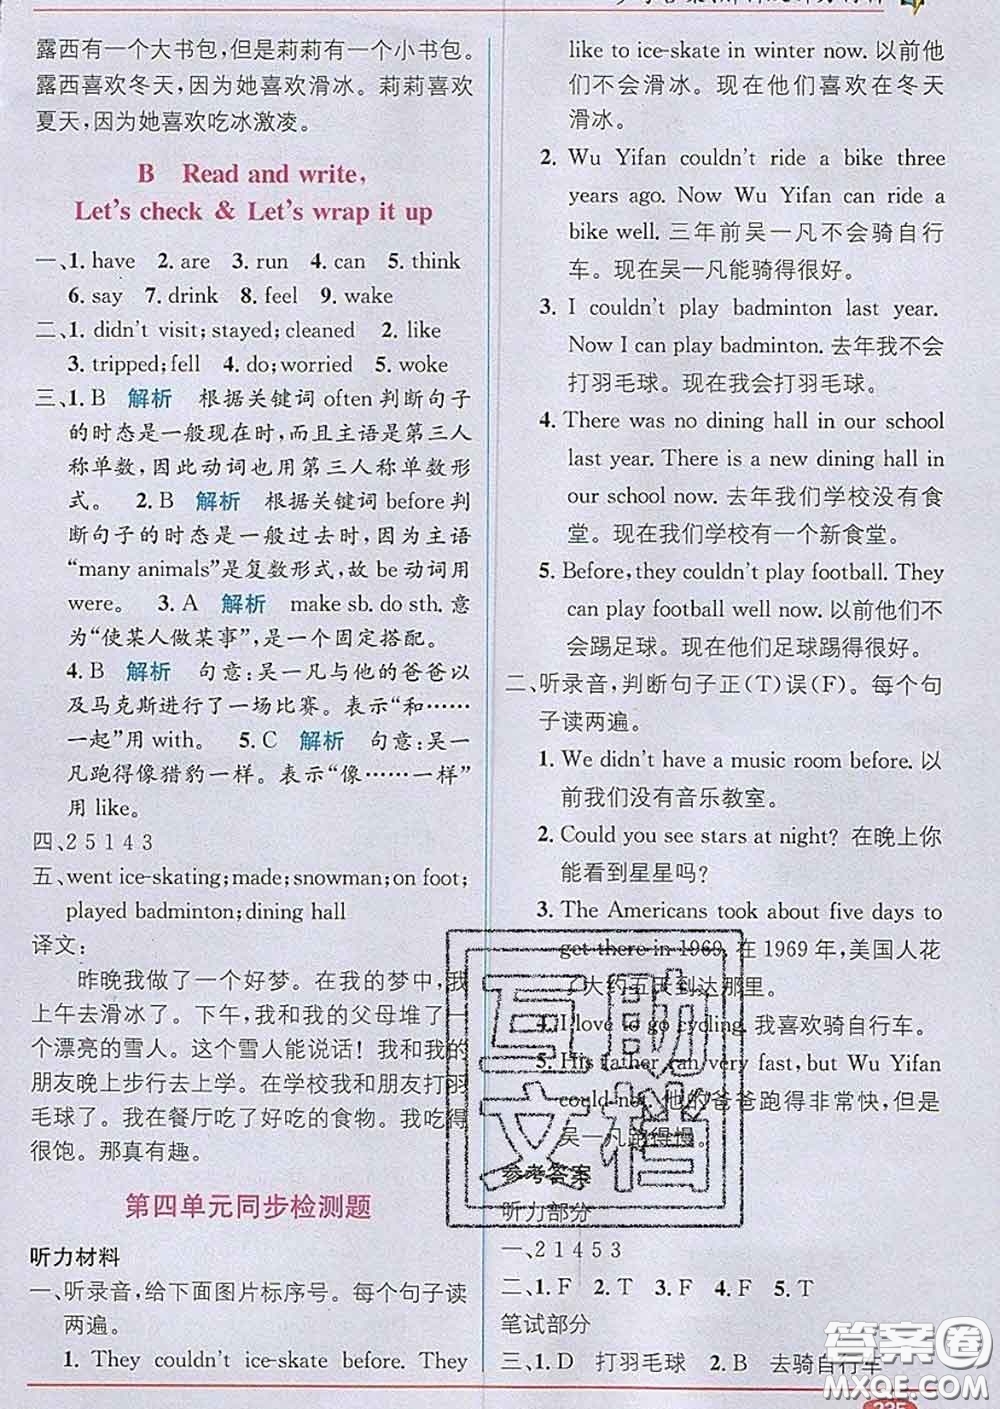 露西有一个大书包,但是莉莉有一个小书包。
露西喜欢冬天,因为她喜欢滑冰。莉莉喜欢
夏天,因为她喜欢吃冰激凌。
B Read and write,
Let's check & Let's wrap it up
一、1. have 2. are 3. run 4. can 5. think
6. say 7. drink 8. feel 9. wake
二、1. didn't visit;stayed;cleaned 2. like
3. tripped;fell 4. do;worried 5. woke
三、1. B 解析 根据关键词 often 判断句子
的时态是一般现在时,而且主语是第三人
称单数,因此动词也用第三人称单数形
式。 2. B 解析 根据关键词 before 判
断句子的时态是一般过去时,因为主语
“many animals”是复数形式,故 be 动词用
were。 3. A 解析 make sb. do sth. 意
为“使某人做某事”,是一个固定搭配。
4. B 解析 句意:吴一凡与他的爸爸以
及马克斯进行了一场比赛。表示“和……
一起”用 with。 5. C 解析 句意:吴一
凡跑得像猎豹一样。表示“像……一样”
用 like。
四、2 5 1 4 3
五、went ice-skating;made;snowman;on foot;
played badminton;dining hall
译文:
昨晚我做了一个好梦。在我的梦中,我
上午去滑冰了。下午,我和我的父母堆了
一个漂亮的雪人。这个雪人能说话!我和我的
朋友晚上步行去上学。在学校我和朋友打羽
毛球了。我在餐厅吃了好吃的食物。我吃得
很饱。那真有趣。
第四单元同步检测题
听力材料
一、听录音,给下面图片标序号。每个句子读
两遍。
1. They couldn't ice-skate before. They
like to ice-skate in winter now. 以前他
们不会滑冰。现在他们喜欢在冬天
滑冰。
2. Wu Yifan couldn't ride a bike three
years ago. Now Wu Yifan can ride a
bike well. 三年前吴一凡不会骑自行
车。现在吴一凡能骑得很好。
3. I couldn't play badminton last year.
Now I can play badminton. 去年我不会
打羽毛球。现在我会打羽毛球。
4. There was no dining hall in our school
last year. There is a new dining hall in
our school now. 去年我们学校没有食
堂。现在我们学校有一个新食堂。
5. Before, they couldn't play football. They
can play football well now. 以前他们不
会踢足球。现在他们足球踢得很好。
二、听录音,判断句子正(T)误(F)。每个句
子读两遍。
1. We didn't have a music room before. 以
前我们没有音乐教室。
2. Could you see stars at night? 在晚上你
能看到星星吗?
3. The Americans took about five days to
get there in 1969. 在 1969 年,美国人花
了大约五天到达那里。
4. I love to go cycling. 我喜欢骑自行车。
5. His father ran very fast, but Wu Yifan
could not. 他的爸爸跑得非常快,但是
吴一凡跑得慢。
参考答案
听力部分
一、2 1 4 5 3
二、1. F 2. T 3. F 4. F 5. T
笔试部分
三、1. D 打羽毛球 2. B 去骑自行车
互助
文档
答案圈
MXQE.COM
225